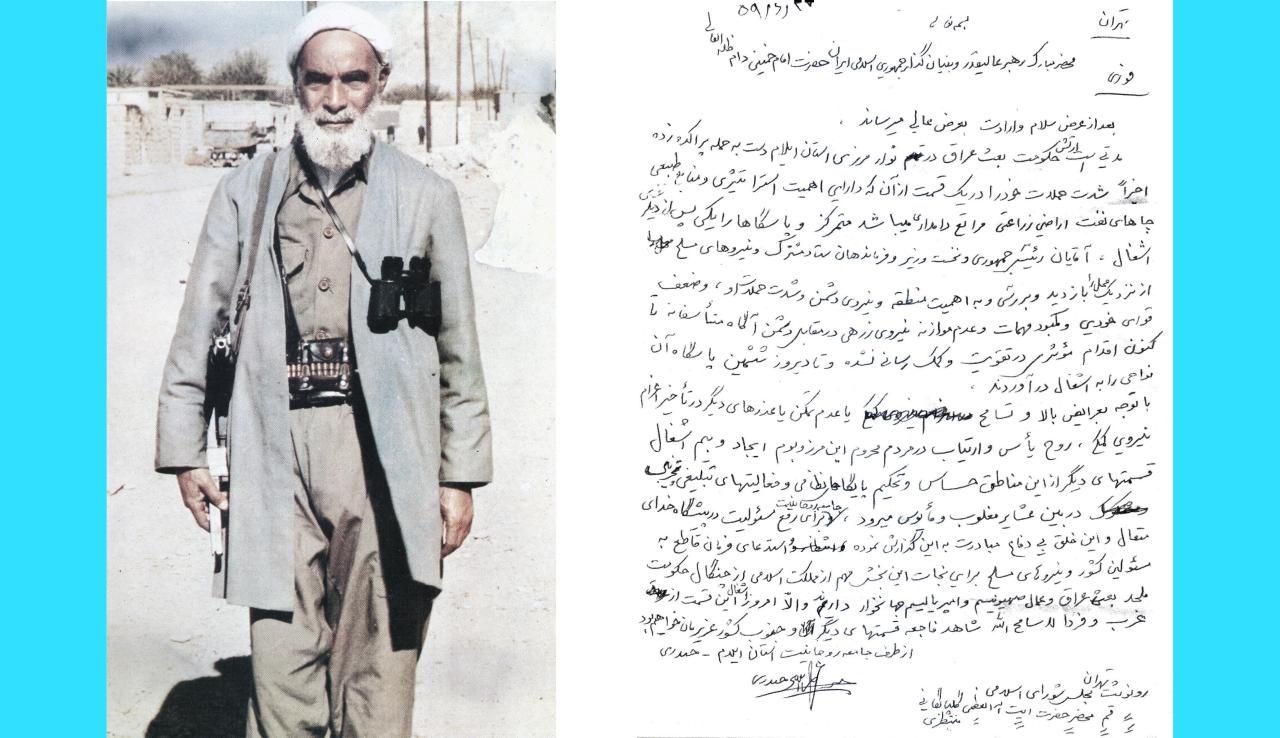 ۵۹/۶/۲۴
بسمه تعالی
تهران
محضر مبارک رهبر عالیقدر و بنیان گذار جمهوری اسلامی ایران حضرت امام خمینی دام ظله العالی
فوری
بعد از عرض سلام و ارادت بعرض عالی میرساند ،
مدتی است ارتش حکومت بعث عراق در نوار مرزی استان ایلام دست به حمله پراکنده زده
اخیراً شدت حملات خود را در یک قسمت از آن که دارای اهمیت استراتیژی و منابع طبیعی
چاهای نفت اراضی زراعتی مراتع دامداری میباشد متمرکز و پاسگاها را یکی پس از دیگری
اشغال ، آقایان رئیس جمهوری و نخست وزیر و فرماندهان ستاد مشترک و نیروهای مسلح
از نزدیک بازدید و بررسی و به اهمیت منطقه و نیروی دشمن و شدت حملات ، و ضعف
قوای خودی و کمبود مهمات و عدم موازنه نیروی زرهی در مقابل دشمن آگاه متأسفانه تا
کنون اقدام مؤثری در تقویت و کمک رسانی نشده و تا دیروز ششمین پاسگاه آن
نواحی را به اشغال درآوردند .
با توجه بعرایض بالا و تسامح یا عدم تمکن یا عذرهای دیگر در تأخیر اعزام
نیروی کمکی ، روح یأس و ارتیاب در مردم محروم این مرز و بوم ایجاد و بیم اشغال
قسمتهای دیگر از این مناطق حساس و تحکیم پایگاههای نظامی و فعالیتهای تبلیغی
در بین عشایر مغلوب و مأیوس میرود ، جامعه روحانیت برای رفع مسئولیت در پیشگاه خدای
متعال و این خلق بی دفاع مبادرت به این گزارش نموده استدعای فرمان قاطع به
مسئولین کشور و نیروهای مسلح برای نجات این بخش مهم از مملکت اسلامی از چنگال حکومت
ملحد بعث عراق و عمال صهیونیسم و امپریالیسم جهانخوار دارند والا امروز اشغال این قسمت از
غرب و فردا لا سامح الله شاهد فاجعه قسمتهای دیگر و جنوب کشور عزیزمان خواهیم بود
از طرف جامعه روحانیت استان ایلام - حیدری
حیدری
رونوشت تهران مجلس شورای اسلامی
قم محضر حضرت آیت اله العظمی گلپایگانی
منتظری